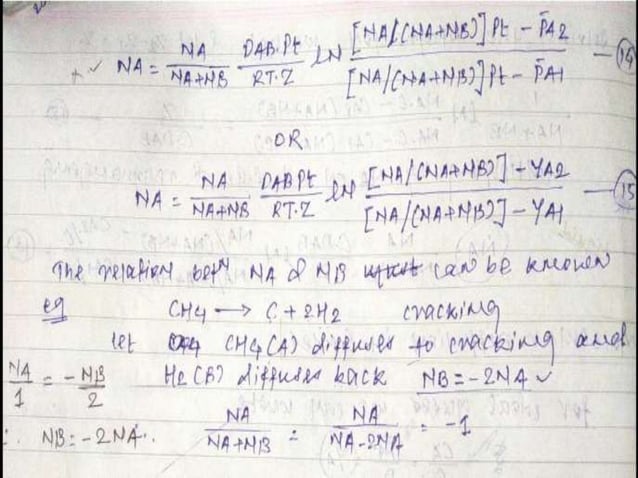 NA = NA/(NA+NB) DAB.Pt/(RT.Z) ln [NA/(NA+NB)]Pt - P̄A2 / [NA/(NA+NB)]Pt - P̄A1 — (14)
OR
NA = NA/(NA+NB) DABPt/(RT.Z) ln [NA/(NA+NB)] - YA2 / [NA/(NA+NB)] - YA1 — (15)
The relation betn NA & NB can be known
eg CH4 → C + 2H2 cracking
let CH4 (A) diffuses to cracking and
NA/1 = -NB/2 H2 (B) diffuses back NB = -2NA ✓
∴ NB = -2NA. NA/(NA+NB) = NA/(NA-2NA) = -1